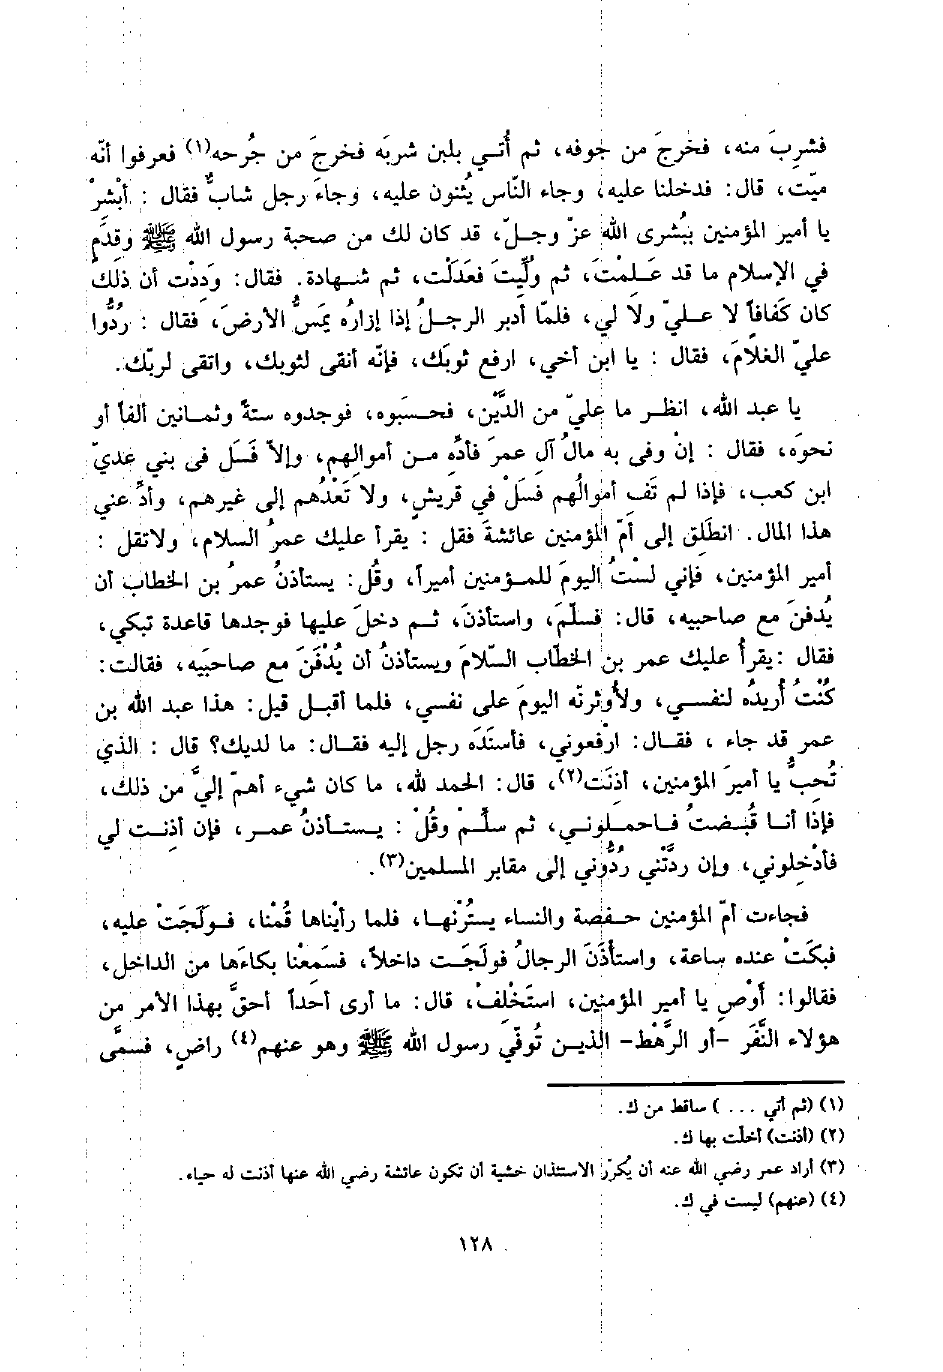 فشربَ منه، فخرجَ من جوفه، ثم أُتي بلبن شربَه فخرجَ من جُرحه(١) فعرفوا أنّه
ميّت، قال: فدخلنا عليه، وجاء النّاس يُثنون عليه، وجاءَ رجل شابٌّ فقال : أبْشِرْ
يا أمير المؤمنين ببُشرى الله عزّ وجلّ، قد كان لك من صحبة رسول الله ﷺ وقِدَمٍ
في الإسلام ما قد عَلمْتَ، ثم وُلِّيتَ فعَدَلْت، ثم شهادة. فقال: وَددْت أن ذلك
كان كَفافاً لا عليّ ولا لي، فلمّا أدبر الرجلُ إذا إزارُه يمَسُّ الأرضَ، فقال : رُدُّوا
عليّ الغلامَ، فقال : يا ابن أخي، ارفع ثوبَك، فإنّه أنقى لثوبك، واتقى لربّك.
يا عبد الله، انظر ما عليّ من الدَّيْن، فحسَبوه، فوجدوه ستةً وثمانين ألفاً أو
نحوَه، فقال : إنْ وفى به مالُ آل عمرَ فأدِّه من أموالهم، وإلاّ فَسَل فى بني عديّ
ابن كعب، فإذا لم تَفِ أموالُهم فسَلْ في قريشٍ، ولا تَعْدُهم إلى غيرهم، وأدِّ عني
هذا المال. انطَلِق إلى أمّ المؤمنين عائشةَ فقل : يقرأ عليك عمرُ السلام، ولاتقل :
أمير المؤمنين، فإني لستُ اليومَ للمؤمنين أميراً، وقُل: يستأذنُ عمرُ بن الخطاب أن
يُدفنَ مع صاحبيه، قال: فسلَّمَ، واستأذنَ، ثم دخلَ عليها فوجدها قاعدة تبكي،
فقال :يقرأُ عليك عمر بن الخطّاب السّلامَ ويستأذنُ أن يُدْفَنَ مع صاحبَيه، فقالت:
كُنْتُ أُريدُه لنفسي، ولأُوثرنّه اليومَ على نفسي، فلما أقبل قيل: هذا عبد الله بن
عمر قد جاء ، فقال: ارْفعوني، فأسنَدَه رجل إليه فقال: ما لديك؟ قال : الذي
تُحِبُّ يا أميرَ المؤمنين، أذنَت(٢)، قال: الحمد لله، ما كان شيء أهمّ إليَّ من ذلك،
فإذا أنا قُبضتُ فاحملوني، ثم سلِّمْ وقُلْ : يستأذنُ عمر، فإن أذِنت لي
فأدْخِلوني، وإن ردَّتْني رُدُّوني إلى مقابر المسلمين(٣).
فجاءت أمّ المؤمنين حفصة والنساء يستُرْنها، فلما رأيْناها قُمْنا، فولَجَتْ عليه،
فبكَتْ عنده ساعة، واستأذَنَ الرجالُ فولَجَت داخلاً، فسَمِعْنا بكاءَها من الداخل،
فقالوا: أوْصِ يا أمير المؤمنين، استَخْلِفْ، قال: ما أرى أحداً أحقَّ بهذا الأمر من
هؤلاء النَّفَر –أو الرَّهْط– الذين تُوفّي رسول الله ﷺ وهو عنهم(٤) راضٍ، فسمَّى
(١) (ثم أتي . . . ) ساقط من ك.
(٢) (أذنت) أخلّت بها ك.
(٣) أراد عمر رضي الله عنه أن يُكرّر الاستئذان خشية أن تكون عائشة رضي الله عنها أذنت له حياء.
(٤) (عنهم) ليست في ك.
١٢٨